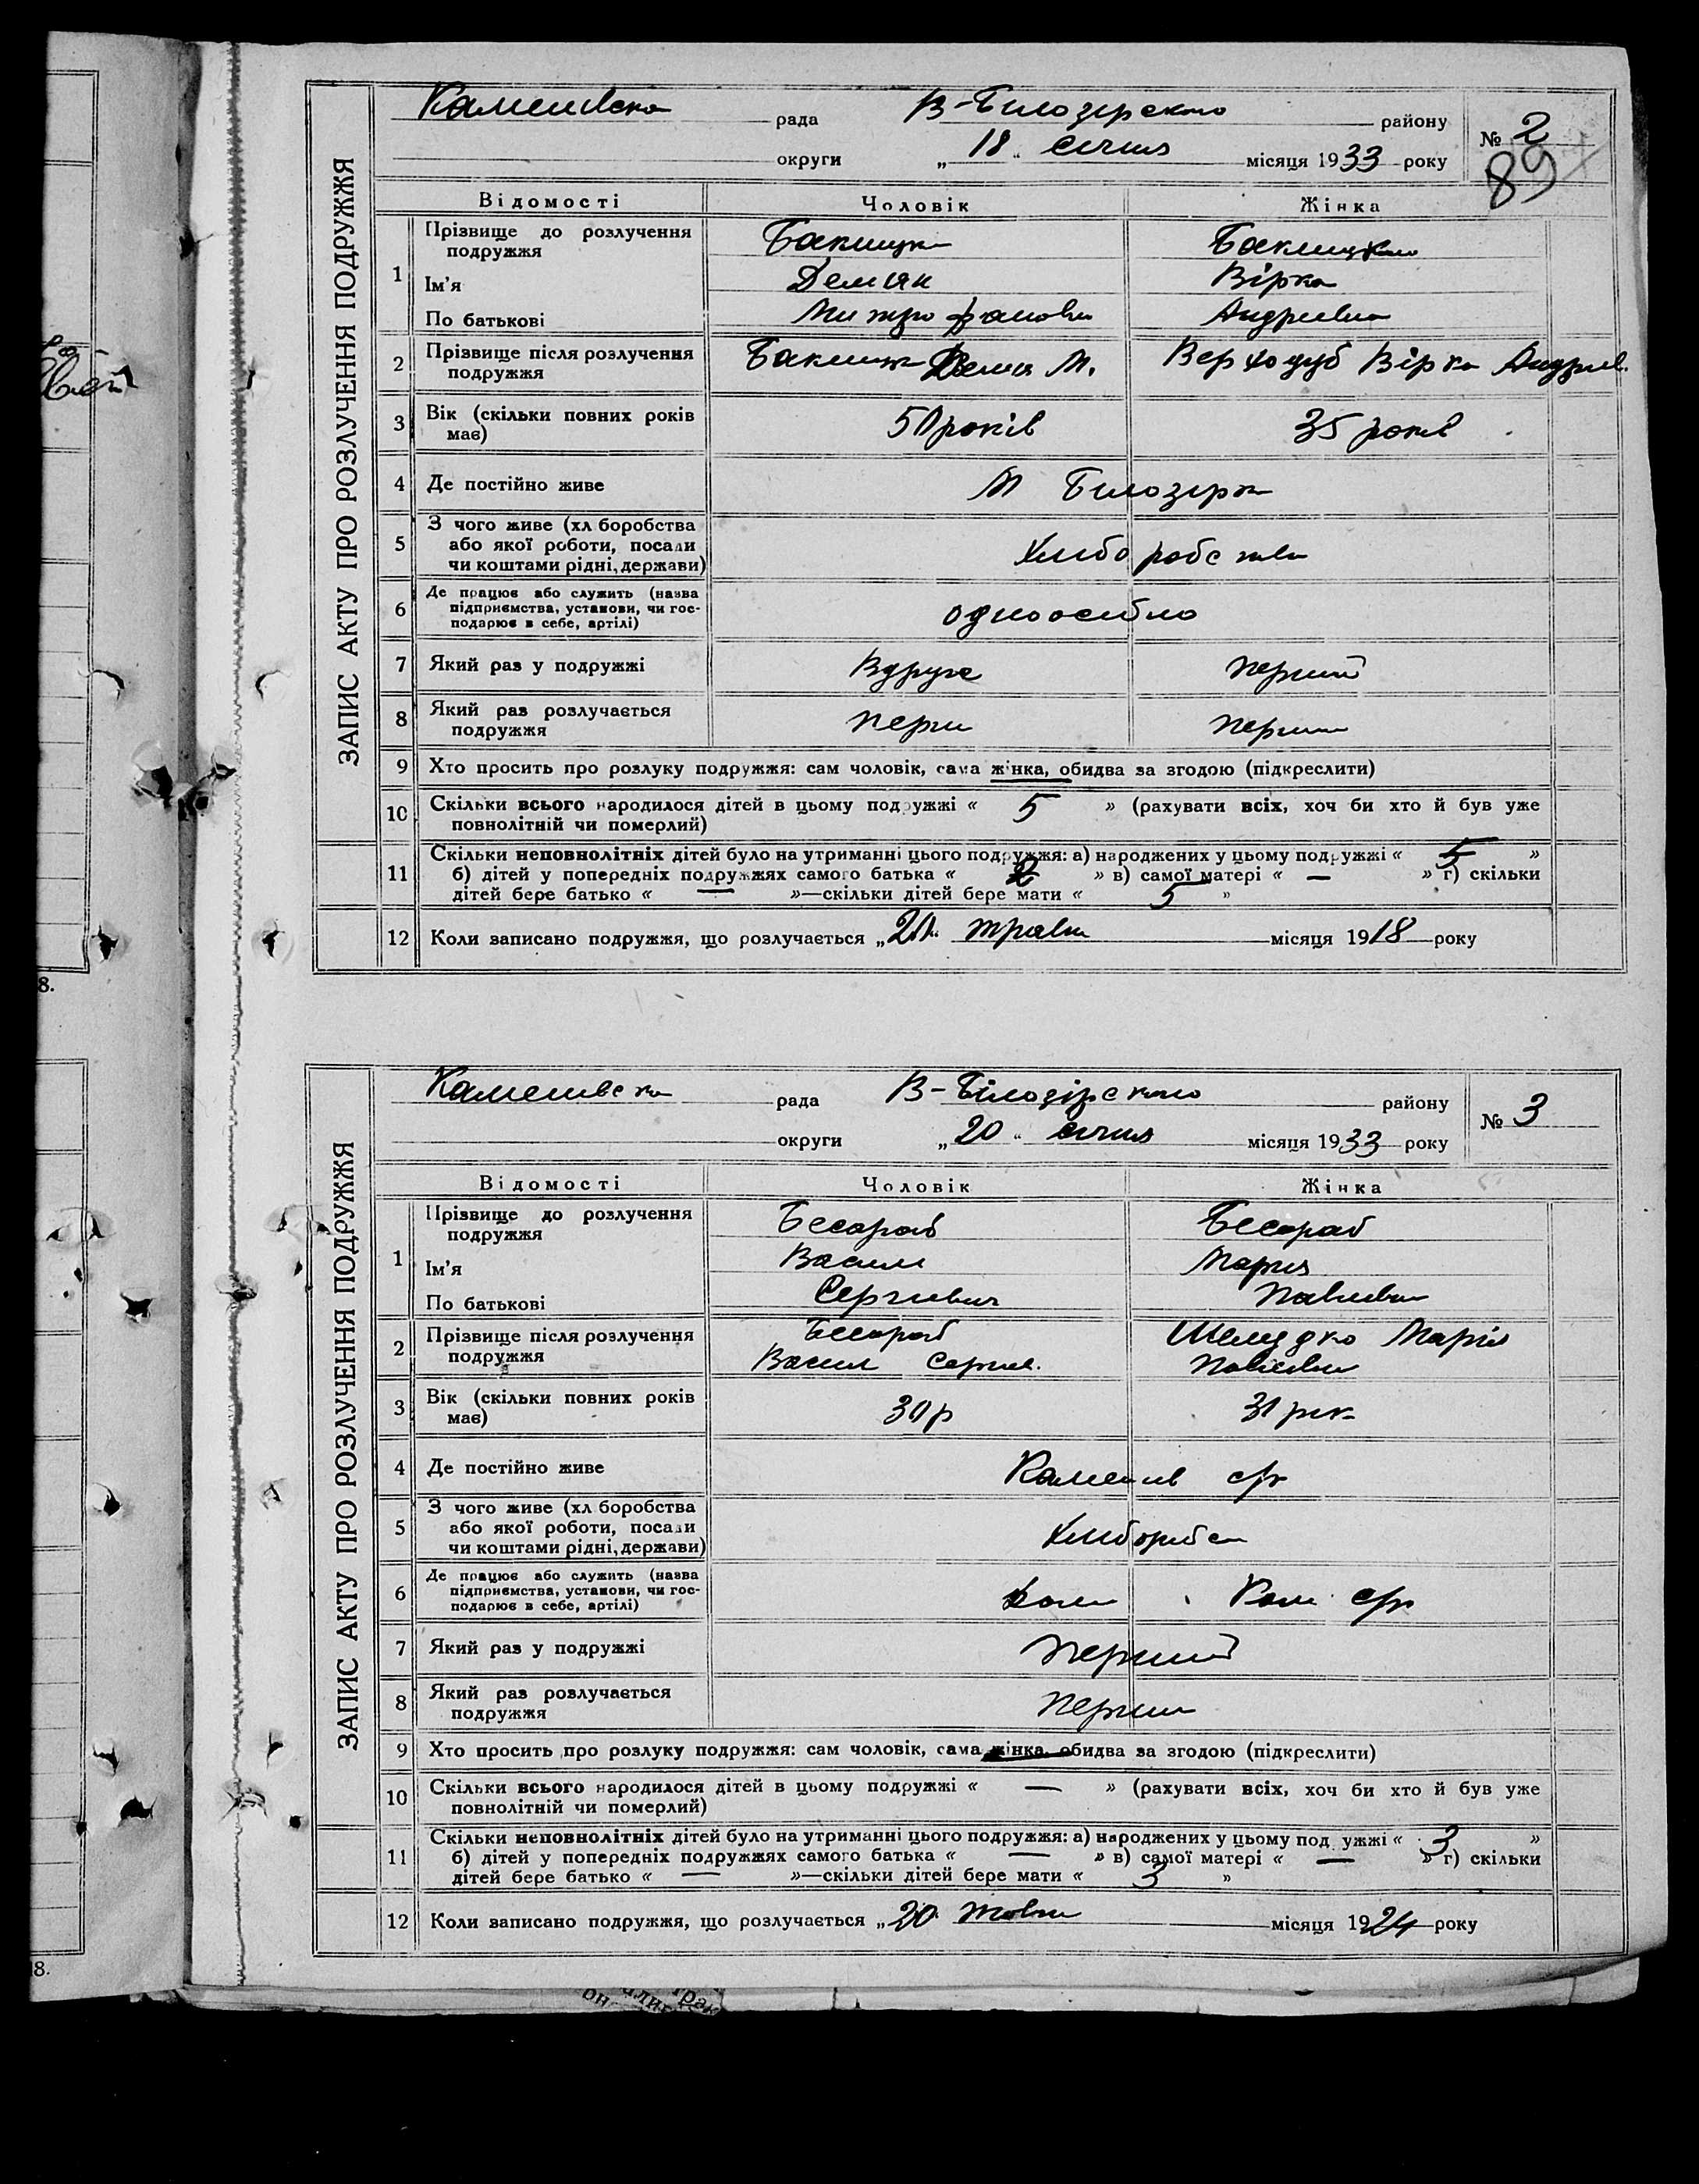 ЗАПИС АКТУ ПРО РОЗЛУЧЕННЯ ПОДРУЖЖЯ
рада В-Білозерського району № 2
округи „ 18 “ січня місяця 1933 року 89
Відомості Чоловік Жінка
1 Прізвище до розлучення подружжя
Ім'я Демян Вірка
По батькові Митрофанови Андриевна
2 Прізвище після розлучення подружжя М. Верходуб Вірка Андриев.
3 Вік (скільки повних років має) 50 років 35 років
4 Де постійно живе М Білозерка
5 З чого живе (хліборобства або якої роботи, посади чи коштами рідні, держави) хлиборобства
6 Де працює або служить (назва підприємства, установи, чи господарює в себе, артілі) одноосибно
7 Який раз у подружжі Вдруге перший
8 Який раз розлучається подружжя перши перши
9 Хто просить про розлуку подружжя: сам чоловік, сама жінка, обидва за згодою (підкреслити)
10 Скільки всього народилося дітей в цьому подружжі « 5 » (рахувати всіх, хоч би хто й був уже
повнолітній чи померлий)
11 Скільки неповнолітніх дітей було на утриманні цього подружжя: а) народжених у цьому подружжі « 5 »
б) дітей у попередніх подружжях самого батька « » в) самої матері « — » г) скільки
дітей бере батько « — »—скільки дітей бере мати « 5 »
12 Коли записано подружжя, що розлучається „ 20 “ травня місяця 1918 року
ЗАПИС АКТУ ПРО РОЗЛУЧЕННЯ ПОДРУЖЖЯ
рада В-Білозірского району № 3
округи „ 20 “ січня місяця 1933 року
Відомості Чоловік Жінка
1 Прізвище до розлучення подружжя Бесараб Бесараб
Ім'я Васили Мария
По батькові Сергиевич Павливна
2 Прізвище після розлучення подружжя Бесараб Василь Сергие. Шелудко Марія Павливна
3 Вік (скільки повних років має) 30 р 31 рік
4 Де постійно живе с/р
5 З чого живе (хліборобства або якої роботи, посади чи коштами рідні, держави)
6 Де працює або служить (назва підприємства, установи, чи господарює в себе, артілі) Кам с/р
7 Який раз у подружжі перший
8 Який раз розлучається подружжя перши
9 Хто просить про розлуку подружжя: сам чоловік, сама жінка, обидва за згодою (підкреслити)
10 Скільки всього народилося дітей в цьому подружжі « — » (рахувати всіх, хоч би хто й був уже
повнолітній чи померлий)
11 Скільки неповнолітніх дітей було на утриманні цього подружжя: а) народжених у цьому подружжі « 3 »
б) дітей у попередніх подружжях самого батька « — » в) самої матері « — » г) скільки
дітей бере батько « — »—скільки дітей бере мати « 3 »
12 Коли записано подружжя, що розлучається „ 20 “ жовтн місяця 1924 року